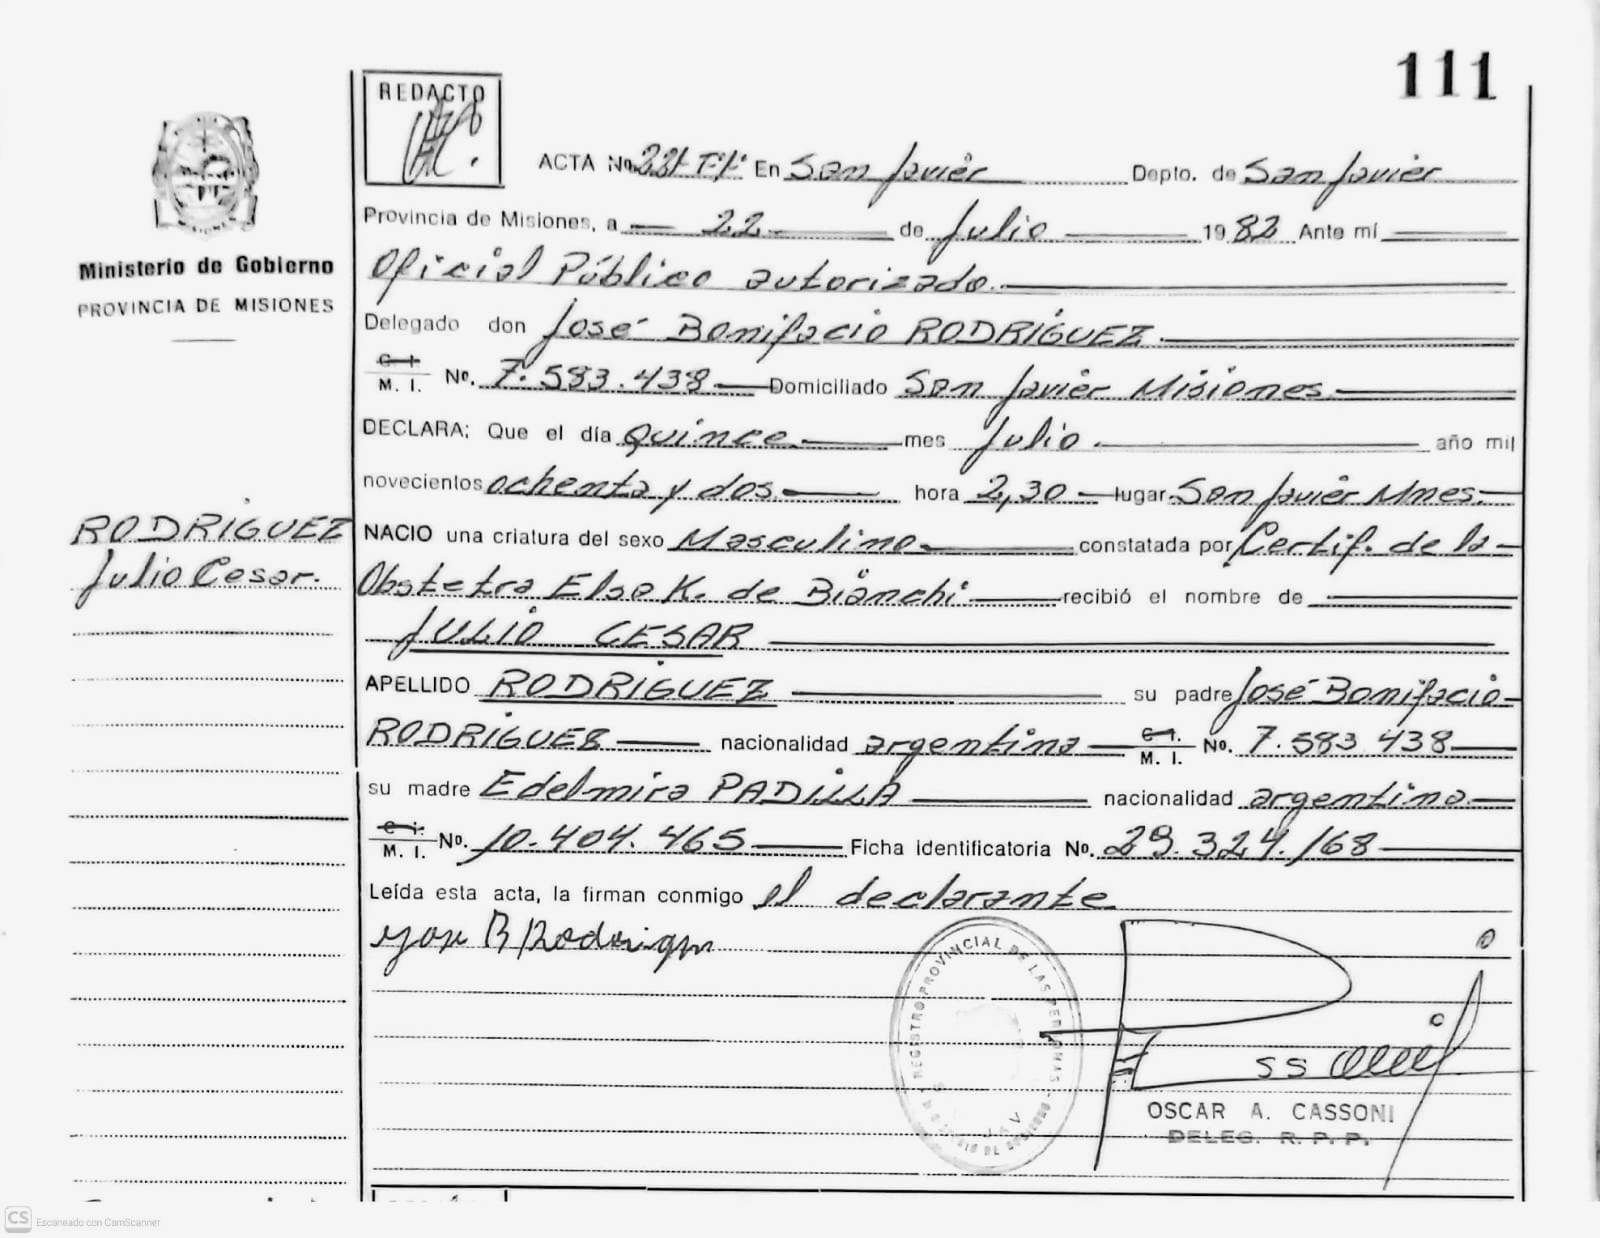 111
REDACTO
ACTA No. En San Javier Depto. de San Javier
Provincia de Misiones, a 22 de Julio 1982 Ante mí
Oficial Público autorizado.
Delegado don José Bonifacio RODRÍGUEZ
C. I.
M. I. No. 7.583.438 Domiciliado San Javier Misiones
DECLARA: Que el día quince mes Julio año mil
novecientos ochenta y dos hora 2,30 lugar San Javier Mnes.
NACIO una criatura del sexo Masculino constatada por Certif. de la
Obstetra Elsa K. de Bianchi recibió el nombre de
JULIO CESAR
APELLIDO RODRÍGUEZ su padre José Bonifacio
RODRÍGUEZ nacionalidad argentina C. I. M. I. No. 7.583.438
su madre Edelmira PADILLA nacionalidad argentina
C. I.
M. I. No. 10.404.465 Ficha identificatoria No. 29.324./68
Leída esta acta, la firman conmigo el declarante
Jose B Rodrigues
REGISTRO PROVINCIAL DE LAS PERSONAS
OSCAR A. CASSONI
DELEG. R. P. P.
MISIONES
Ministerio de Gobierno
PROVINCIA DE MISIONES
RODRÍGUEZ
Julio Cesar.
CS Escaneado con CamScanner